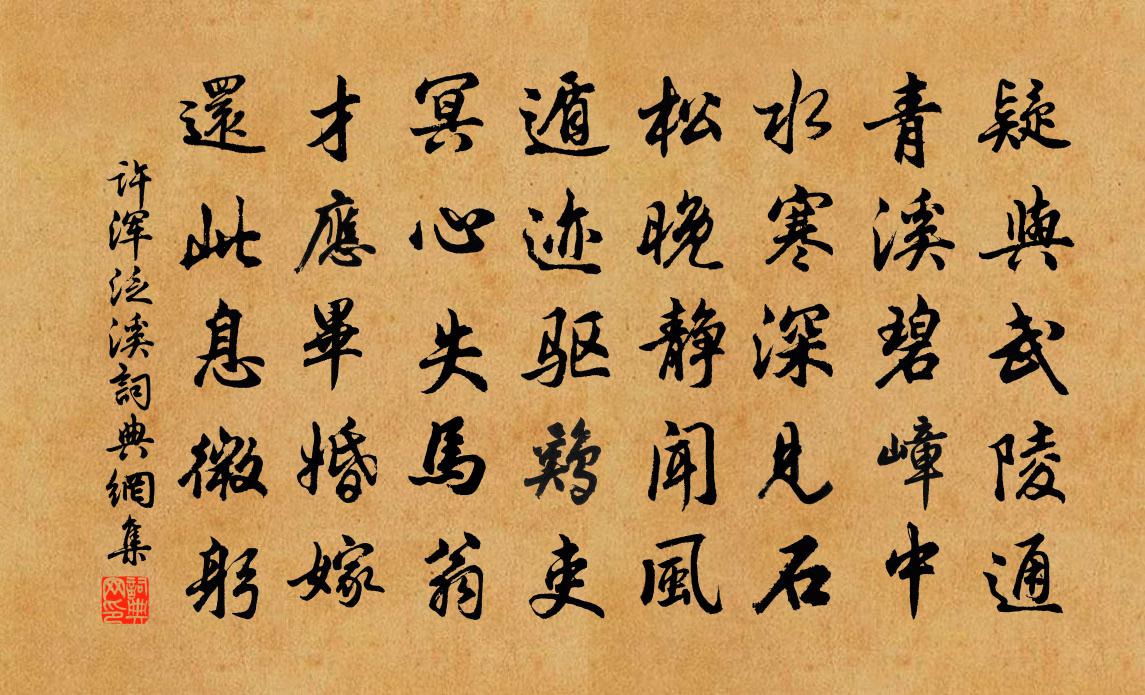 疑與武陵通
青溪碧嶂中
水寒深見石
松晚靜聞風
遁迹驱鷄吏
冥心失馬翁
才應畢婚嫁
還此息微躬
许浑泛溪詞典網集
詞典网印